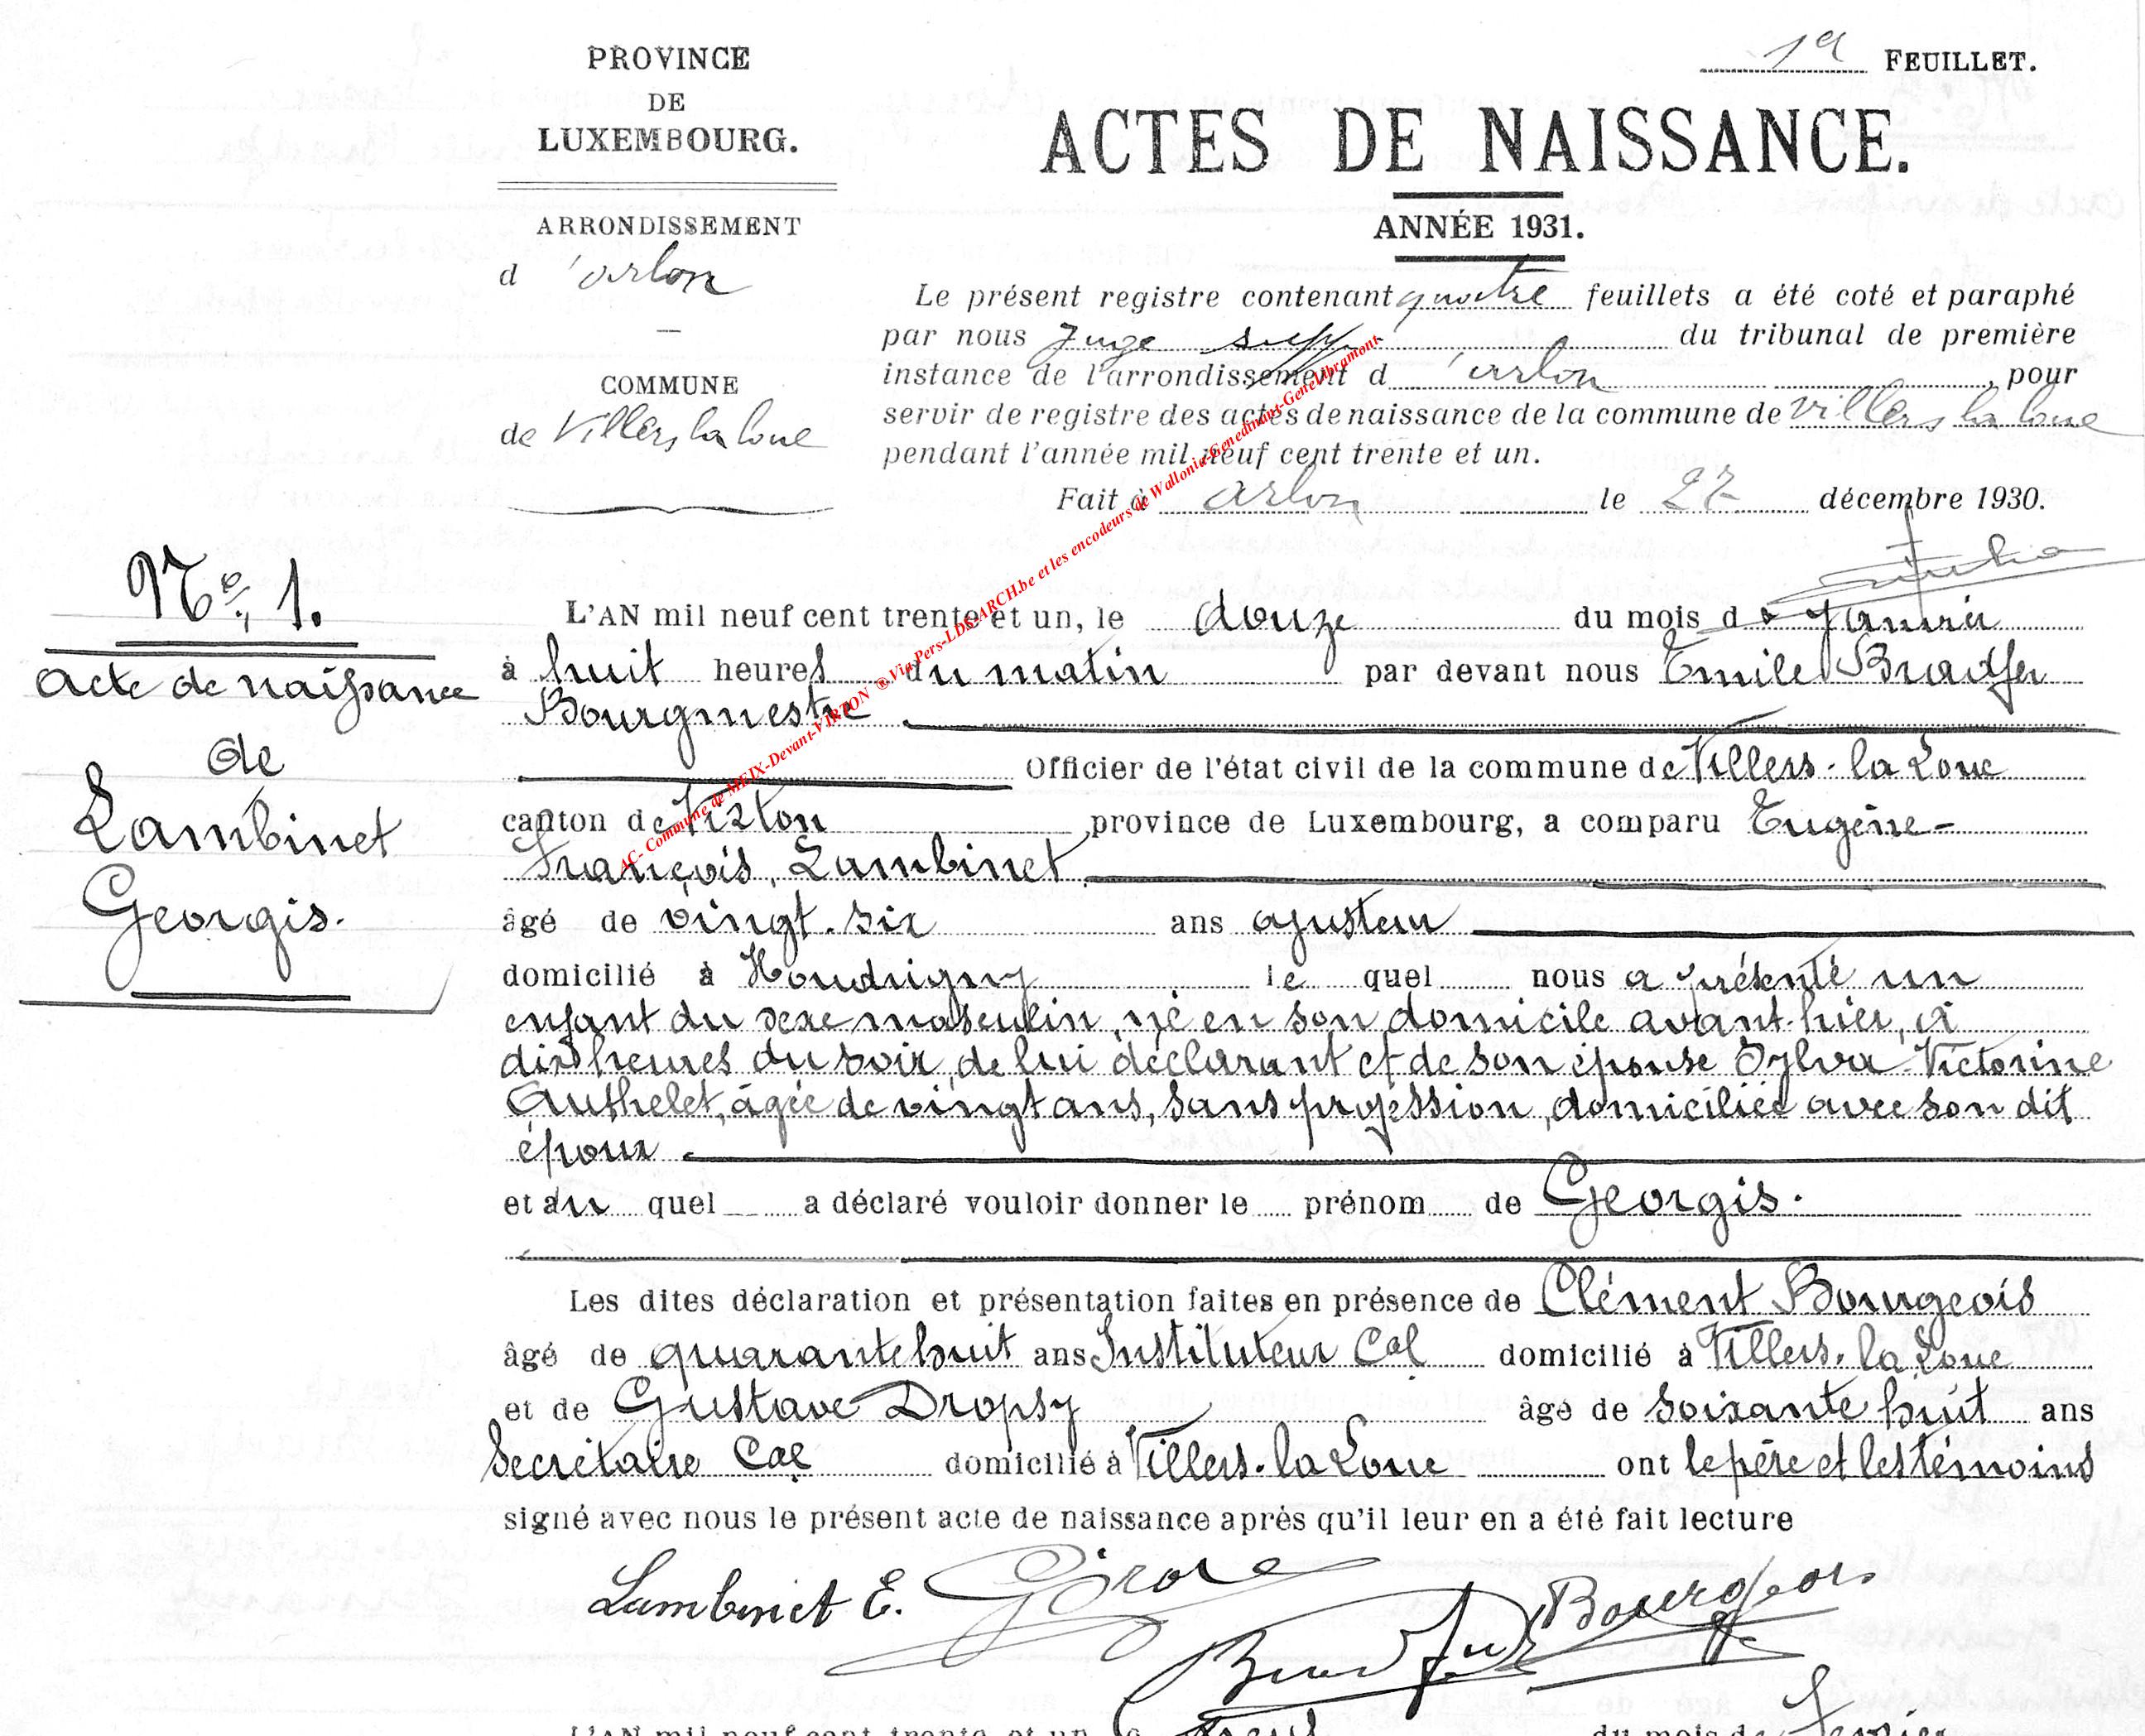 PROVINCE
DE
LUXEMBOURG.
ARRONDISSEMENT
d 'arlon
COMMUNE
de Villers la loue
1er FEUILLET.
ACTES DE NAISSANCE.
ANNÉE 1931.
Le présent registre contenant quatre feuillets a été coté et paraphé
par nous Juge supp. du tribunal de première
instance de l'arrondissement d 'arlon, pour
servir de registre des actes de naissance de la commune de Villers la loue
pendant l'année mil neuf cent trente et un.
Fait à arlon le 27 décembre 1930.
AC- Commune de MEIX-Devant-VIRTON ®Via Pers-LDS-ARCH.be et les encodeurs de Wallonie-Genedinant-GeneLibramont
No, 1.
acte de naissance
de
Lambinet
Georgis.
L'AN mil neuf cent trente et un, le douze du mois de Janvier
à huit heures du matin par devant nous Emile Bradfer
Bourgmestre
Officier de l'état civil de la commune de Villers-la Loue
canton de Virton province de Luxembourg, a comparu Eugène-
François, Lambinet
âgé de vingt-six ans ajusteur
domicilié à Houdrigny le quel nous a présenté un
enfant du sexe masculin, né en son domicile avant-hier, à
dix heures du soir, de lui déclarant et de son épouse Sylva-Victorine
Authelet, âgée de vingt ans, sans profession, domiciliée avec son dit
époux
et au quel a déclaré vouloir donner le prénom de Georgis.
Les dites déclaration et présentation faites en présence de Clément Bourgeois
âgé de quarante huit ans Instituteur Cal domicilié à Villers-la Loue
et de Gustave Dropsy âgé de soixante huit ans
Secrétaire Cal domicilié à Villers-la Loue ont le père et les témoins
signé avec nous le présent acte de naissance après qu'il leur en a été fait lecture
Lambinet E.
Bourgeois
Bradfer
L'AN mil neuf cent trente et un le du mois de Février